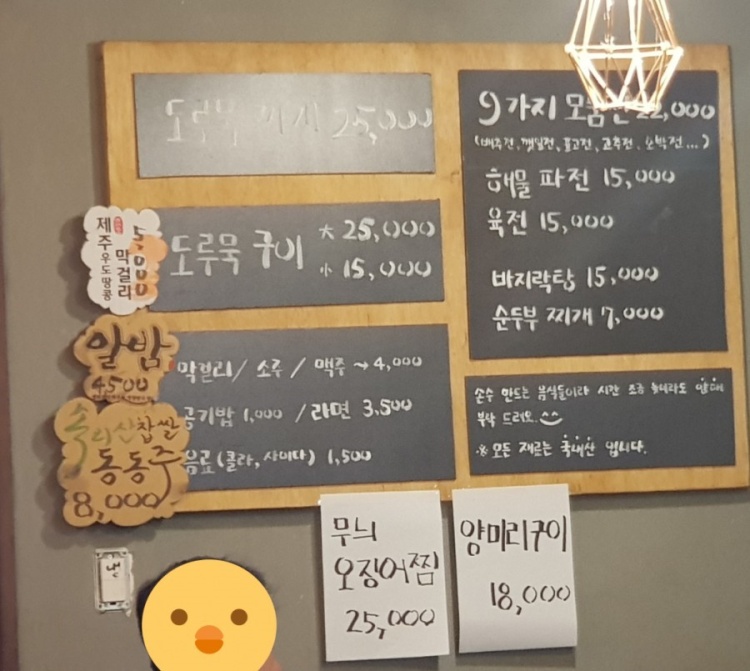 도루묵 찌개 25,000
도루묵 구이 大 25,000
小 15,000
막걸리 / 소주 / 맥주 → 4,000
공기밥 1,000 / 라면 3,500
음료 (콜라, 사이다) 1,500
9가지 모듬전 22,000
(배추전, 깻잎전, 표고전, 고추전, 호박전...)
해물 파전 15,000
육전 15,000
바지락탕 15,000
순두부 찌개 7,000
손수 만드는 음식들이라 시간 조금 늦더라도 양해
부탁 드려요.
※ 모든 재료는 국내산 입니다.
제주 우도땅콩 막걸리 5000
알밤
4500
속리산 찹쌀
동동주
8,000
무늬
오징어찜
25,000
양미리구이
18,000
냉